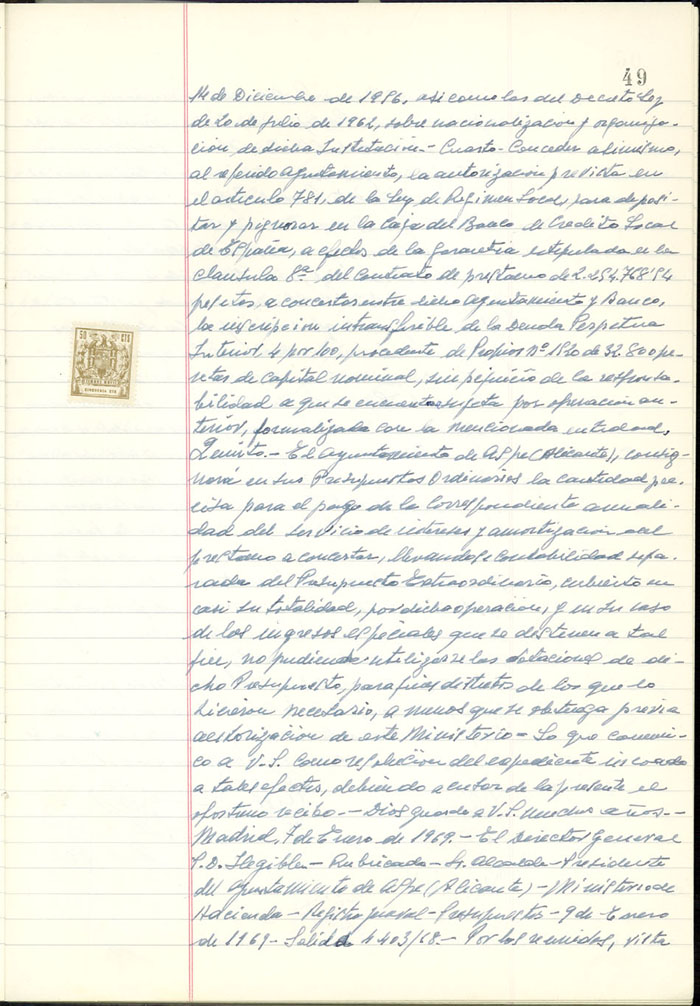 49
14 de Diciembre de 1956, asi como las del Decreto Ley
de 20 de Julio de 1962, sobre nacionalización y organiza-
cion de dicha Institucion.- Cuarto- Conceder asimismo,
al referido Ayuntamiento, la autorización prevista en
el articulo 781, de la Ley de Regimen Local, para deposi-
tar y pignorar en la Caja del Banco de Credito Local
de España, a efectos de la garantia estipulada en la
clausula 8ª del Contrato de prestamo de 2.254.768'54
pesetas, a concertar entre dicho Ayuntamiento y Banco,
la inscripcion intransferible de la Deuda Perpetua
Interior 4 por 100, procedente de Propios Nº 1920 de 32.800 pe-
setas de capital nominal, sin perjuicio de la responsa-
bilidad a que se encuentra sujeta por operacion an-
terior, formalizada con la mencionada entidad,
Quinto.- El Ayuntamiento de Aspe (Alicante), consig-
nará en sus Presupuestos Ordinarios la cantidad pre-
cisa para el pago de la correspondiente anuali-
dad del servicio de intereses y amortización del
prestamo a concertar, llevandose contabilidad sepa-
rada del Presupuesto Extraordinario, cubierto en
casi su totalidad, por dicha operacion, y en su caso
de los ingresos especiales que se destinen a tal
fin, no pudiendo utilizarse las dotaciones de di-
cho Presupuesto, para fines distintos de los que lo
hicieron necesario, a menos que se obtenga previa
autorizacion de este Ministerio- Lo que comuni-
co a V.S. como resolucion del expediente incoado
a tales efectos, debiendo acusar de la presente el
oportuno recibo.-- Dios guarde a V.S. muchos años.-
Madrid, 7 de Enero de 1969.- El Director General
P.D. Ilegible- Rubricado- Sr. Alcalde-Presidente
del Ayuntamiento de Aspe (Alicante)- Ministerio de
Hacienda- Registro General- Presupuestos- 9 de Enero
de 1969- Salida 4403/68.- Por los reunidos, vista
50 CTS